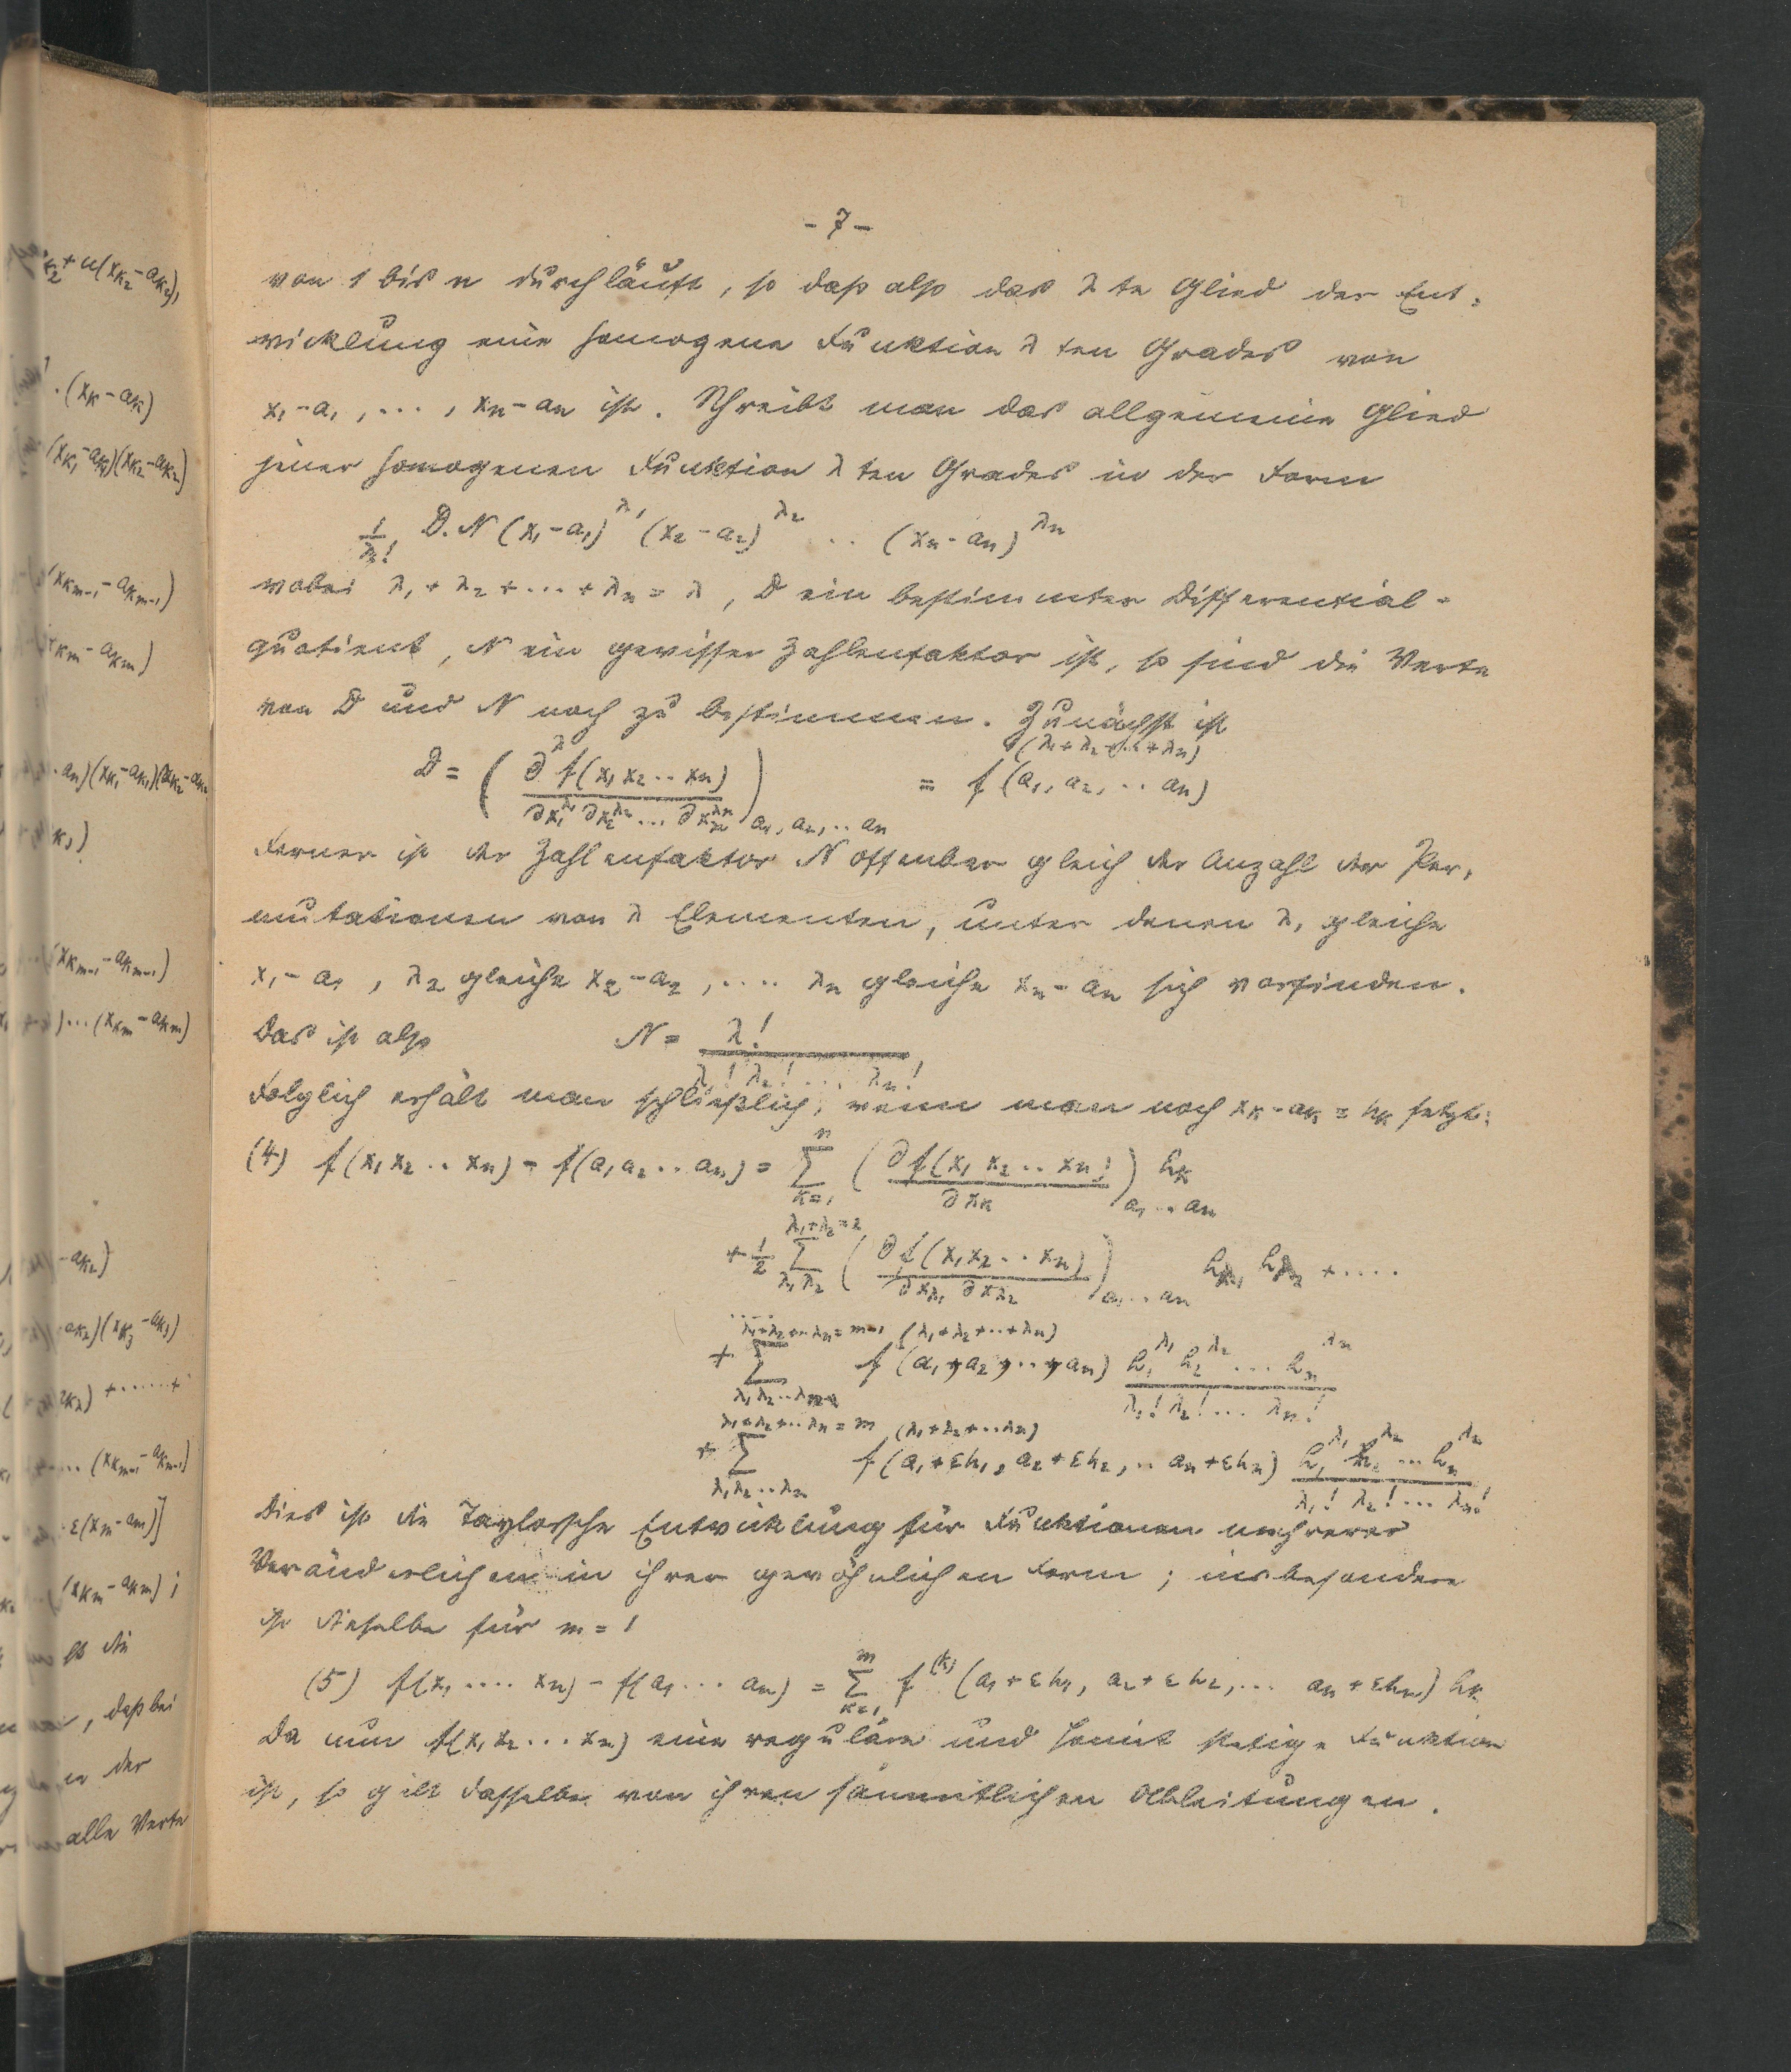 - 7 -
von 1 bis n durchläuft, so daß also das λte Glied der Ent-
wicklung eine homogene Funktion λten Grades von
x₁-a₁, ..., xₙ-aₙ ist. Schreibt man das allgemeine Glied
jener homogenen Funktion λten Grades in der Form
1/λ! D.N (x₁-a₁)^λ₁ (x₂-a₂)^λ₂ .. (xₙ-aₙ)^λₙ
wobei λ₁+λ₂+...+λₙ = λ, D ein bestimmter Differential-
quotient, N ein gewisser Zahlenfaktor ist, so sind die Werte
von D und N noch zu bestimmen. Zunächst ist
D = (∂^λ f(x₁x₂..xₙ) / ∂x₁^λ₁ ∂x₂^λ₂ ... ∂xₙ^λₙ)a₁,a₂,..aₙ = f^(λ₁+λ₂+..+λₙ)(a₁,a₂,..aₙ)
Ferner ist der Zahlenfaktor N offenbar gleich der Anzahl der Per-
mutationen von λ Elementen, unter denen λ₁ gleiche
x₁-a₁, λ₂ gleiche x₂-a₂, .... λₙ gleiche xₙ-aₙ sich vorfinden.
Das ist also N = λ! / λ₁! λ₂! ... λₙ!
Folglich erhält man schließlich, wenn man noch xₖ-aₖ = hₖ setzt:
(4) f(x₁x₂..xₙ) - f(a₁a₂..aₙ) = Σ_{κ=1}^{n} (∂f(x₁x₂..xₙ) / ∂xₖ)a₁..aₙ hₖ
+ 1/2 Σ_{λ₁λ₂}^{λ₁+λ₂=2} (∂f(x₁x₂..xₙ) / ∂xλ₁ ∂xλ₂)a₁..aₙ hλ₁ hλ₂ + ....
.....
+ Σ_{λ₁λ₂..λₙ}^{λ₁+λ₂+..λₙ=m-1} f^(λ₁+λ₂+..+λₙ)(a₁,a₂,..,aₙ) h₁^λ₁ h₂^λ₂ ... hₙ^λₙ / λ₁! λ₂! ... λₙ!
+ Σ_{λ₁λ₂..λₙ}^{λ₁+λ₂+..λₙ=m} f^(λ₁+λ₂+..λₙ)(a₁+εh₁, a₂+εh₂, .. aₙ+εhₙ) h₁^λ₁ h₂^λ₂ ... hₙ^λₙ / λ₁! λ₂! ... λₙ!
Dies ist die Taylorsche Entwicklung für Funktionen mehrerer
Veränderlichen in ihrer gewöhnlichen Form; insbesondere
ist dieselbe für m = 1
(5) f(x₁....xₙ) - f(a₁...aₙ) = Σ_{κ=1}^{m} f^(k)(a₁+εh₁, a₂+εh₂, ... aₙ+εhₙ) hₖ
Da nun f(x₁x₂...xₙ) eine reguläre und somit stetige Funktion
ist, so gilt dasselbe von ihren sämmtlichen Ableitungen.